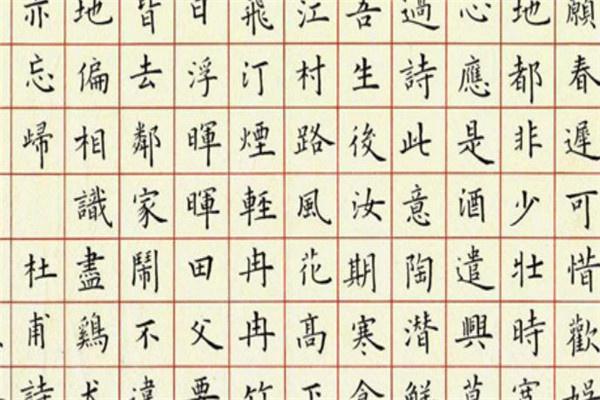 願春遲可惜歡娛
地都非少壯時寬
心應是酒遣興莫
過詩此意陶潛觧
吾生後汝期寒食
江村路風花高下
飛汀煙輕冉冉竹
日浮暉暉田父要
皆去鄰家鬧不違
地偏相識盡鷄犬
亦忘歸 杜甫詩